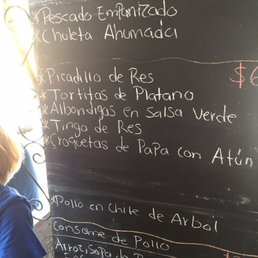 *Pescado Empanizado
*Chuleta Ahumada
*Picadillo de Res
*Tortitas de Platano
*Albondigas en Salsa Verde
*Tinga de Res
*Croquetas de Papa con Atún
$6
*Pollo en Chile de Arbol
Consome de Pollo
Arroz, Sopa de